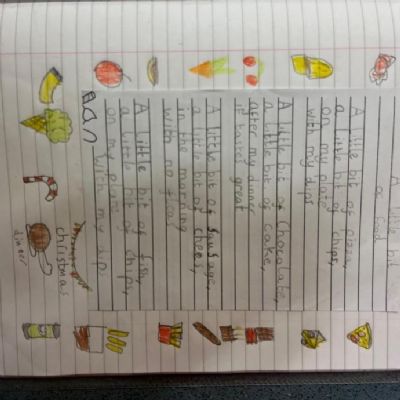 A little bit
a food
A little bit of pizza,
a little bit of chips,
on my plate
with my dips
A little bit of chocolate,
a little bit of cake,
after my dinner
it tastes great
A little bit of sausage,
a little bit of chees,
in the morning
with no
A little bit of fish,
a little bit of chips,
on my plate
with my dips
christmas
dinner